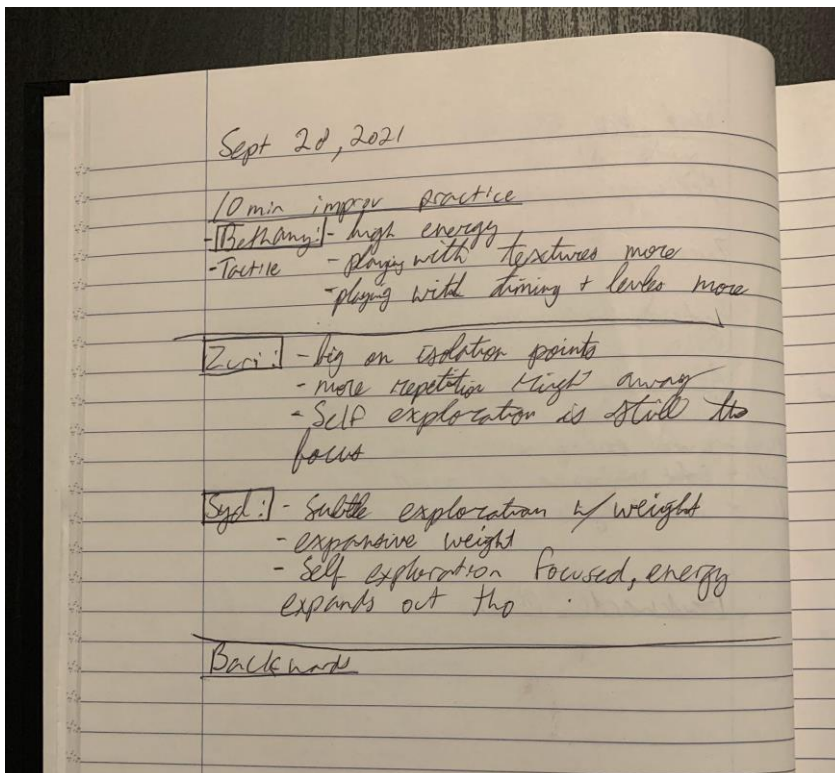 Sept 28, 2021
10 min improv practice
- Bethany: - high energy
- Tactile - playing with textures more
- playing with timing + levles more
Zuri: - big on isolation points
- more repetition right away
- Self exploration is still the
focus
Syd: - Subtle exploration w/ weight
- expansive weight
- Self exploration focused, energy
expands out tho
Backwards